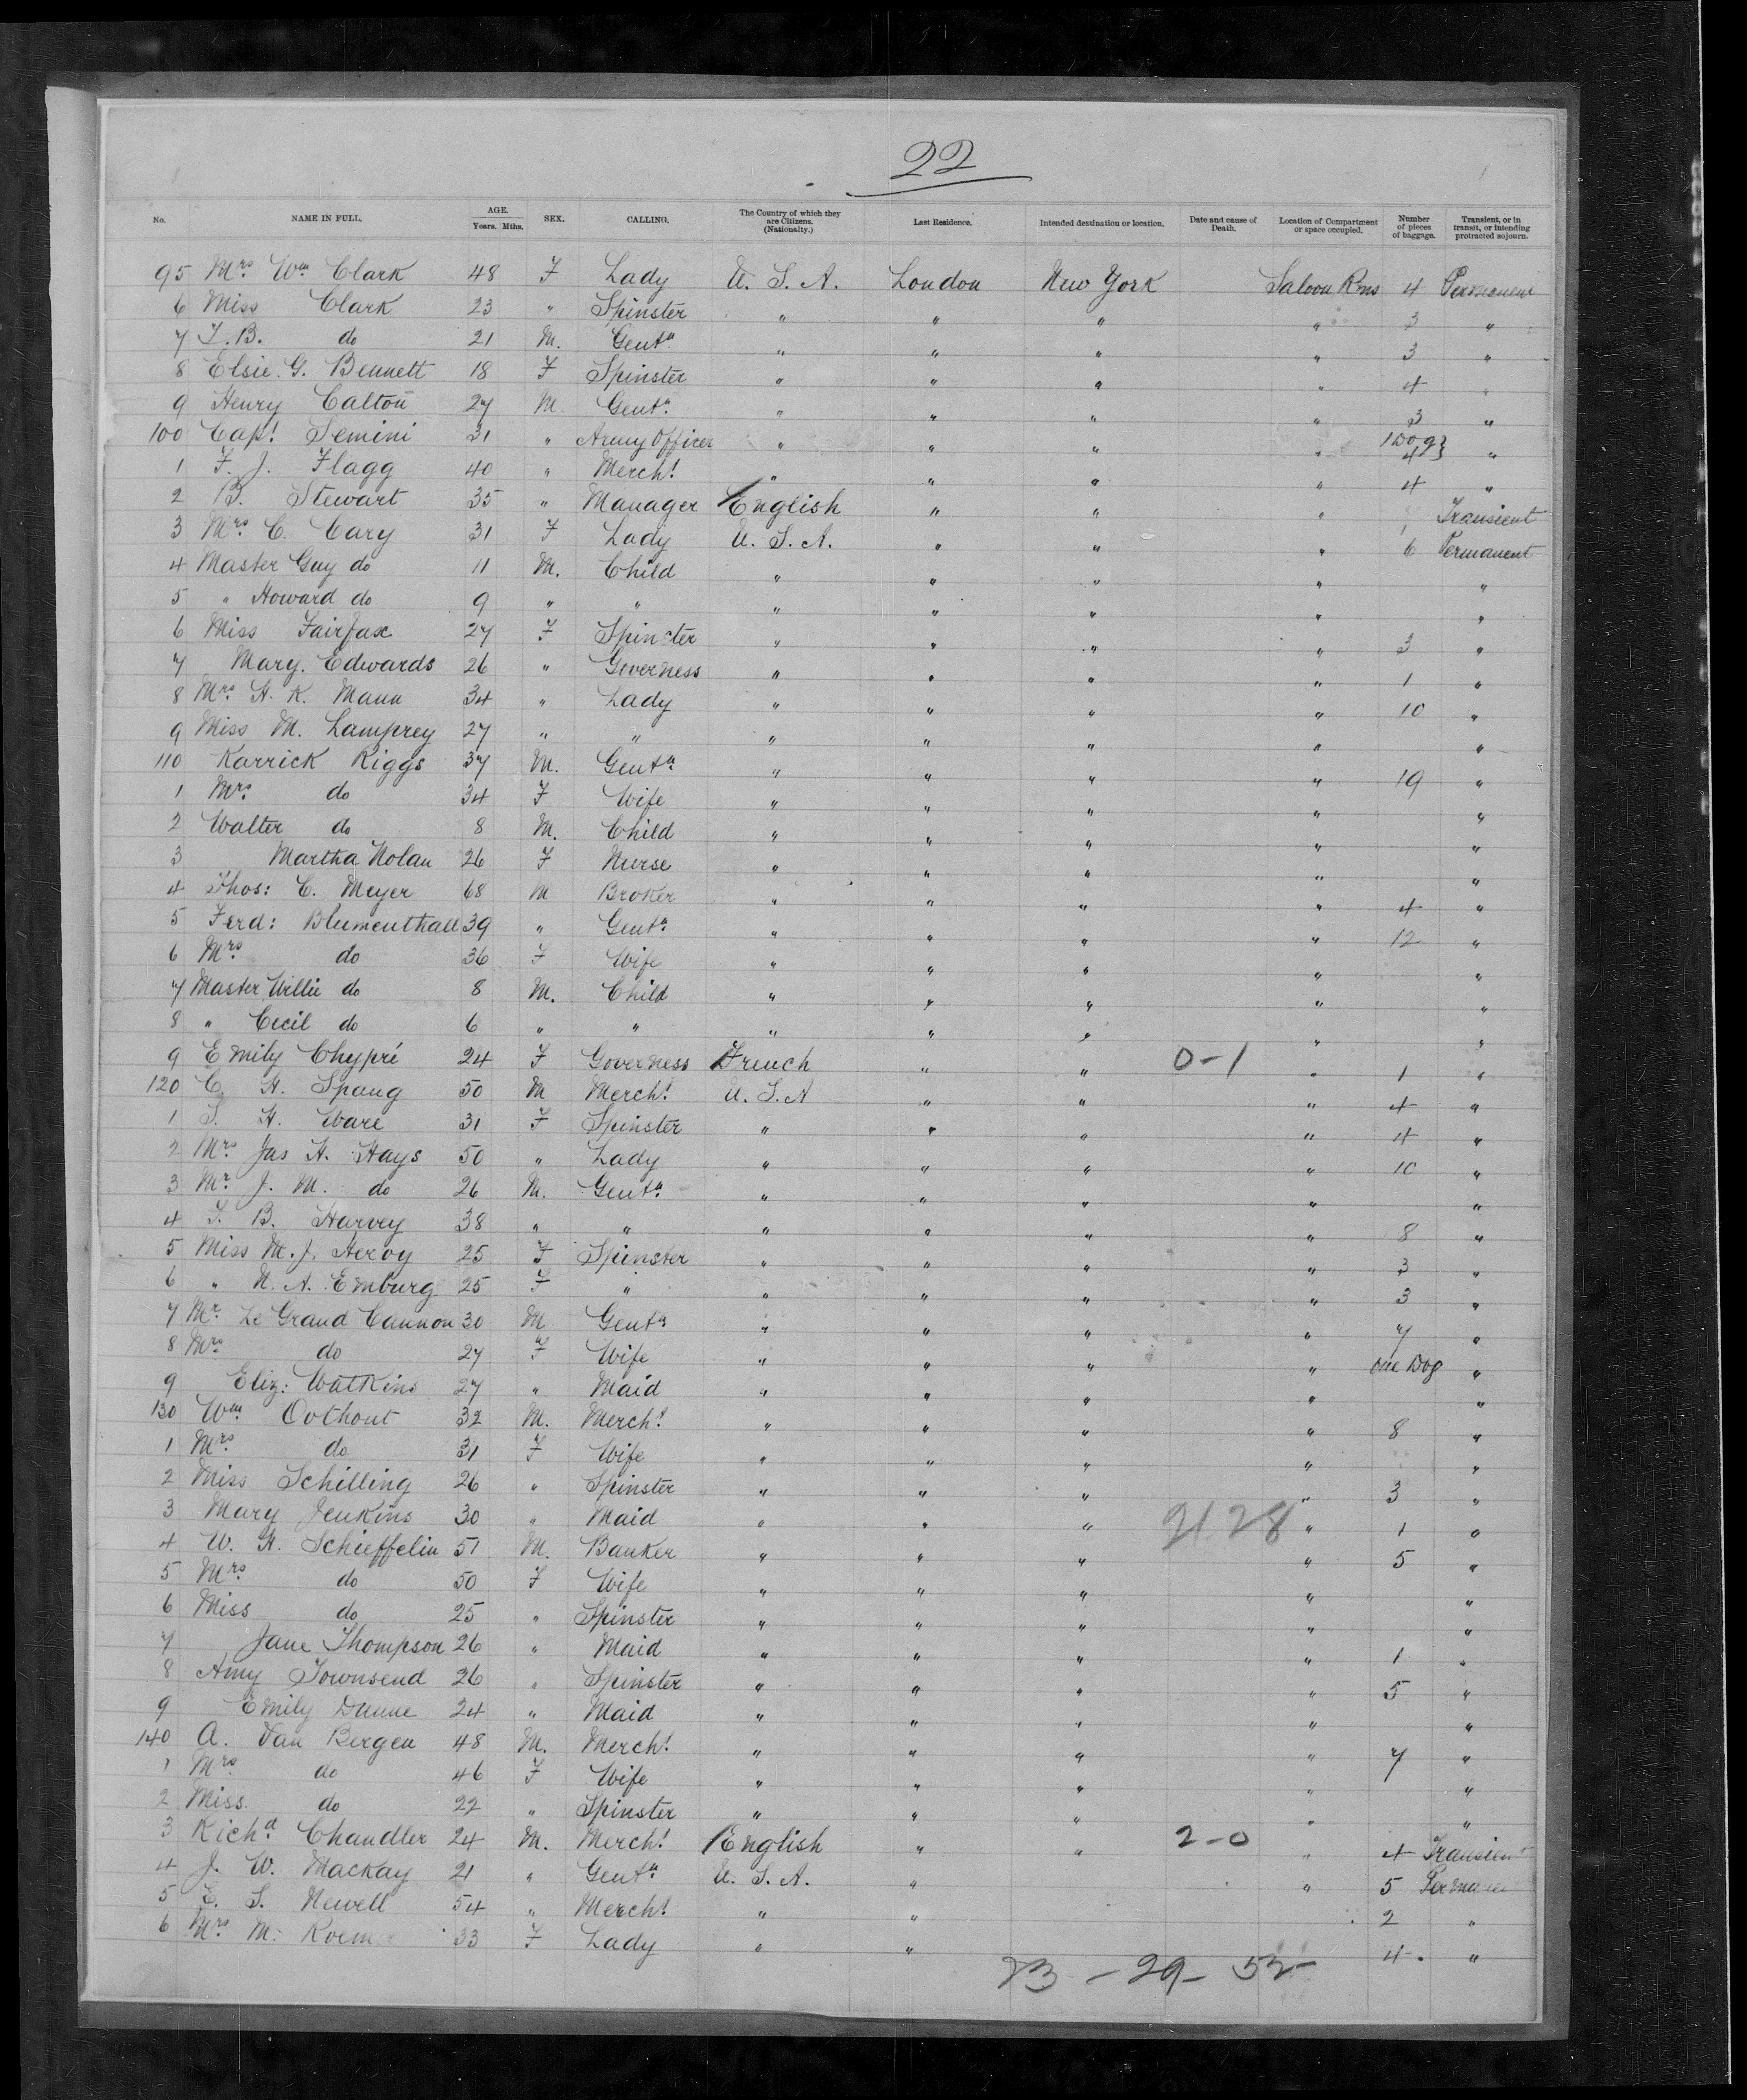 22
No. NAME IN FULL. AGE. Years. Mths. SEX. CALLING. The Country of which they are Citizens. (Nationality.) Last Residence. Intended destination or location. Date and cause of Death. Location of Compartment or space occupied. Number of pieces of baggage. Transient, or in transit, or intending protracted sojourn.
95 Mrs. Wm Clark 48 F Lady U. S. A. London New York Saloon Rms 4 Permanent
6 Miss Clark 23 " Spinster " " " " 3 "
7 T. B. do 21 M. Gentn. " " " " 3 "
8 Elsie. G. Bennett 18 F Spinster " " " " 4 "
9 Henry Calton 27 M Gentn. " " " " 3 "
100 Capt. Semini 31 " Army Officer " " " " 1 Dog } 4 "
1 F. J. Flagg 40 " Mercht. " " " " 4 "
2 B. Stewart 35 " Manager English " " " Transient
3 Mrs C. Cary 31 F Lady U. S. A. " " " 6 Permanent
4 Master Guy do 11 M. Child " " " " "
5 " Howard do 9 " " " " " " "
6 Miss Fairfax 27 F Spinster " " " " 3 "
7 Mary. Edwards 26 " Governess " " " " 1 "
8 Mrs. H. K. Mann 34 " Lady " " " " 10 "
9 Miss M. Lamprey 27 " " " " " " "
110 Karrick Riggs 37 M. Gentn. " " " " 19 "
1 Mrs. do 34 F Wife " " " " "
2 Walter do 8 M. Child " " " " "
3 Martha Nolan 26 F Nurse " " " " "
4 Thos: C. Meyer 68 M Broker " " " " 4 "
5 Ferd: Blumenthall 39 " Gentn. " " " " 12 "
6 Mrs. do 36 F Wife " " " " "
7 Master Willie do 8 M. Child " " " " "
8 " Cecil do 6 " " " " " " "
9 Emily Chypré 24 F Governess French " " 0-1 " 1 "
120 C. H. Spang 50 M Mercht. U. S. A " " " 4 "
1 S. H. Ware 31 F Spinster " " " " 4 "
2 Mrs Jas H. Hays 50 " Lady " " " " 10 "
3 Mr. J. M. do 26 M. Gentn. " " " " "
4 T. B. Harvey 38 " " " " " " 8 "
5 Miss M. J. Heroy 25 F Spinster " " " " 3 "
6 " N. A. Emburg 25 F " " " " " 3 "
7 Mr. Le Grand Cannon 30 M Gentn. " " " " 7 "
8 Mrs. do 27 F Wife " " " " one Dog "
9 Eliz: Watkins 27 " Maid " " " " "
130 Wm Oothout 32 M. Mercht. " " " " 8 "
1 Mrs. do 31 F Wife " " " " "
2 Miss Schilling 26 " Spinster " " " " 3 "
3 Mary Jenkins 30 " Maid " " " 21.28 " 1 "
4 W. H. Schieffelin 51 M. Banker " " " " 5 "
5 Mrs. do 50 F Wife " " " " "
6 Miss do 25 " Spinster " " " " "
7 Jane Thompson 26 " Maid " " " " 1 "
8 Amy Townsend 26 " Spinster " " " " 5 "
9 Emily Dunne 24 " Maid " " " " "
140 A. Van Bergen 48 M. Mercht. " " " " 7 "
1 Mrs. do 46 F Wife " " " " "
2 Miss. do 22 " Spinster " " " " "
3 Richd. Chandler 24 M. Mercht. English " " 2-0 " 4 Transient
4 J. W. Mackay 21 " Gentn. U. S. A. " " 5 Permanen
5 E. S. Newell 54 " Mercht. " " 2 "
6 Mrs M. 33 F Lady " " 4 "
23 - 29 - 52